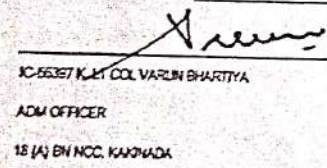 IC-55397 K, LT COL VARUN BHARTIYA
ADM OFFICER
18 (A) BN NCC, KAKINADA